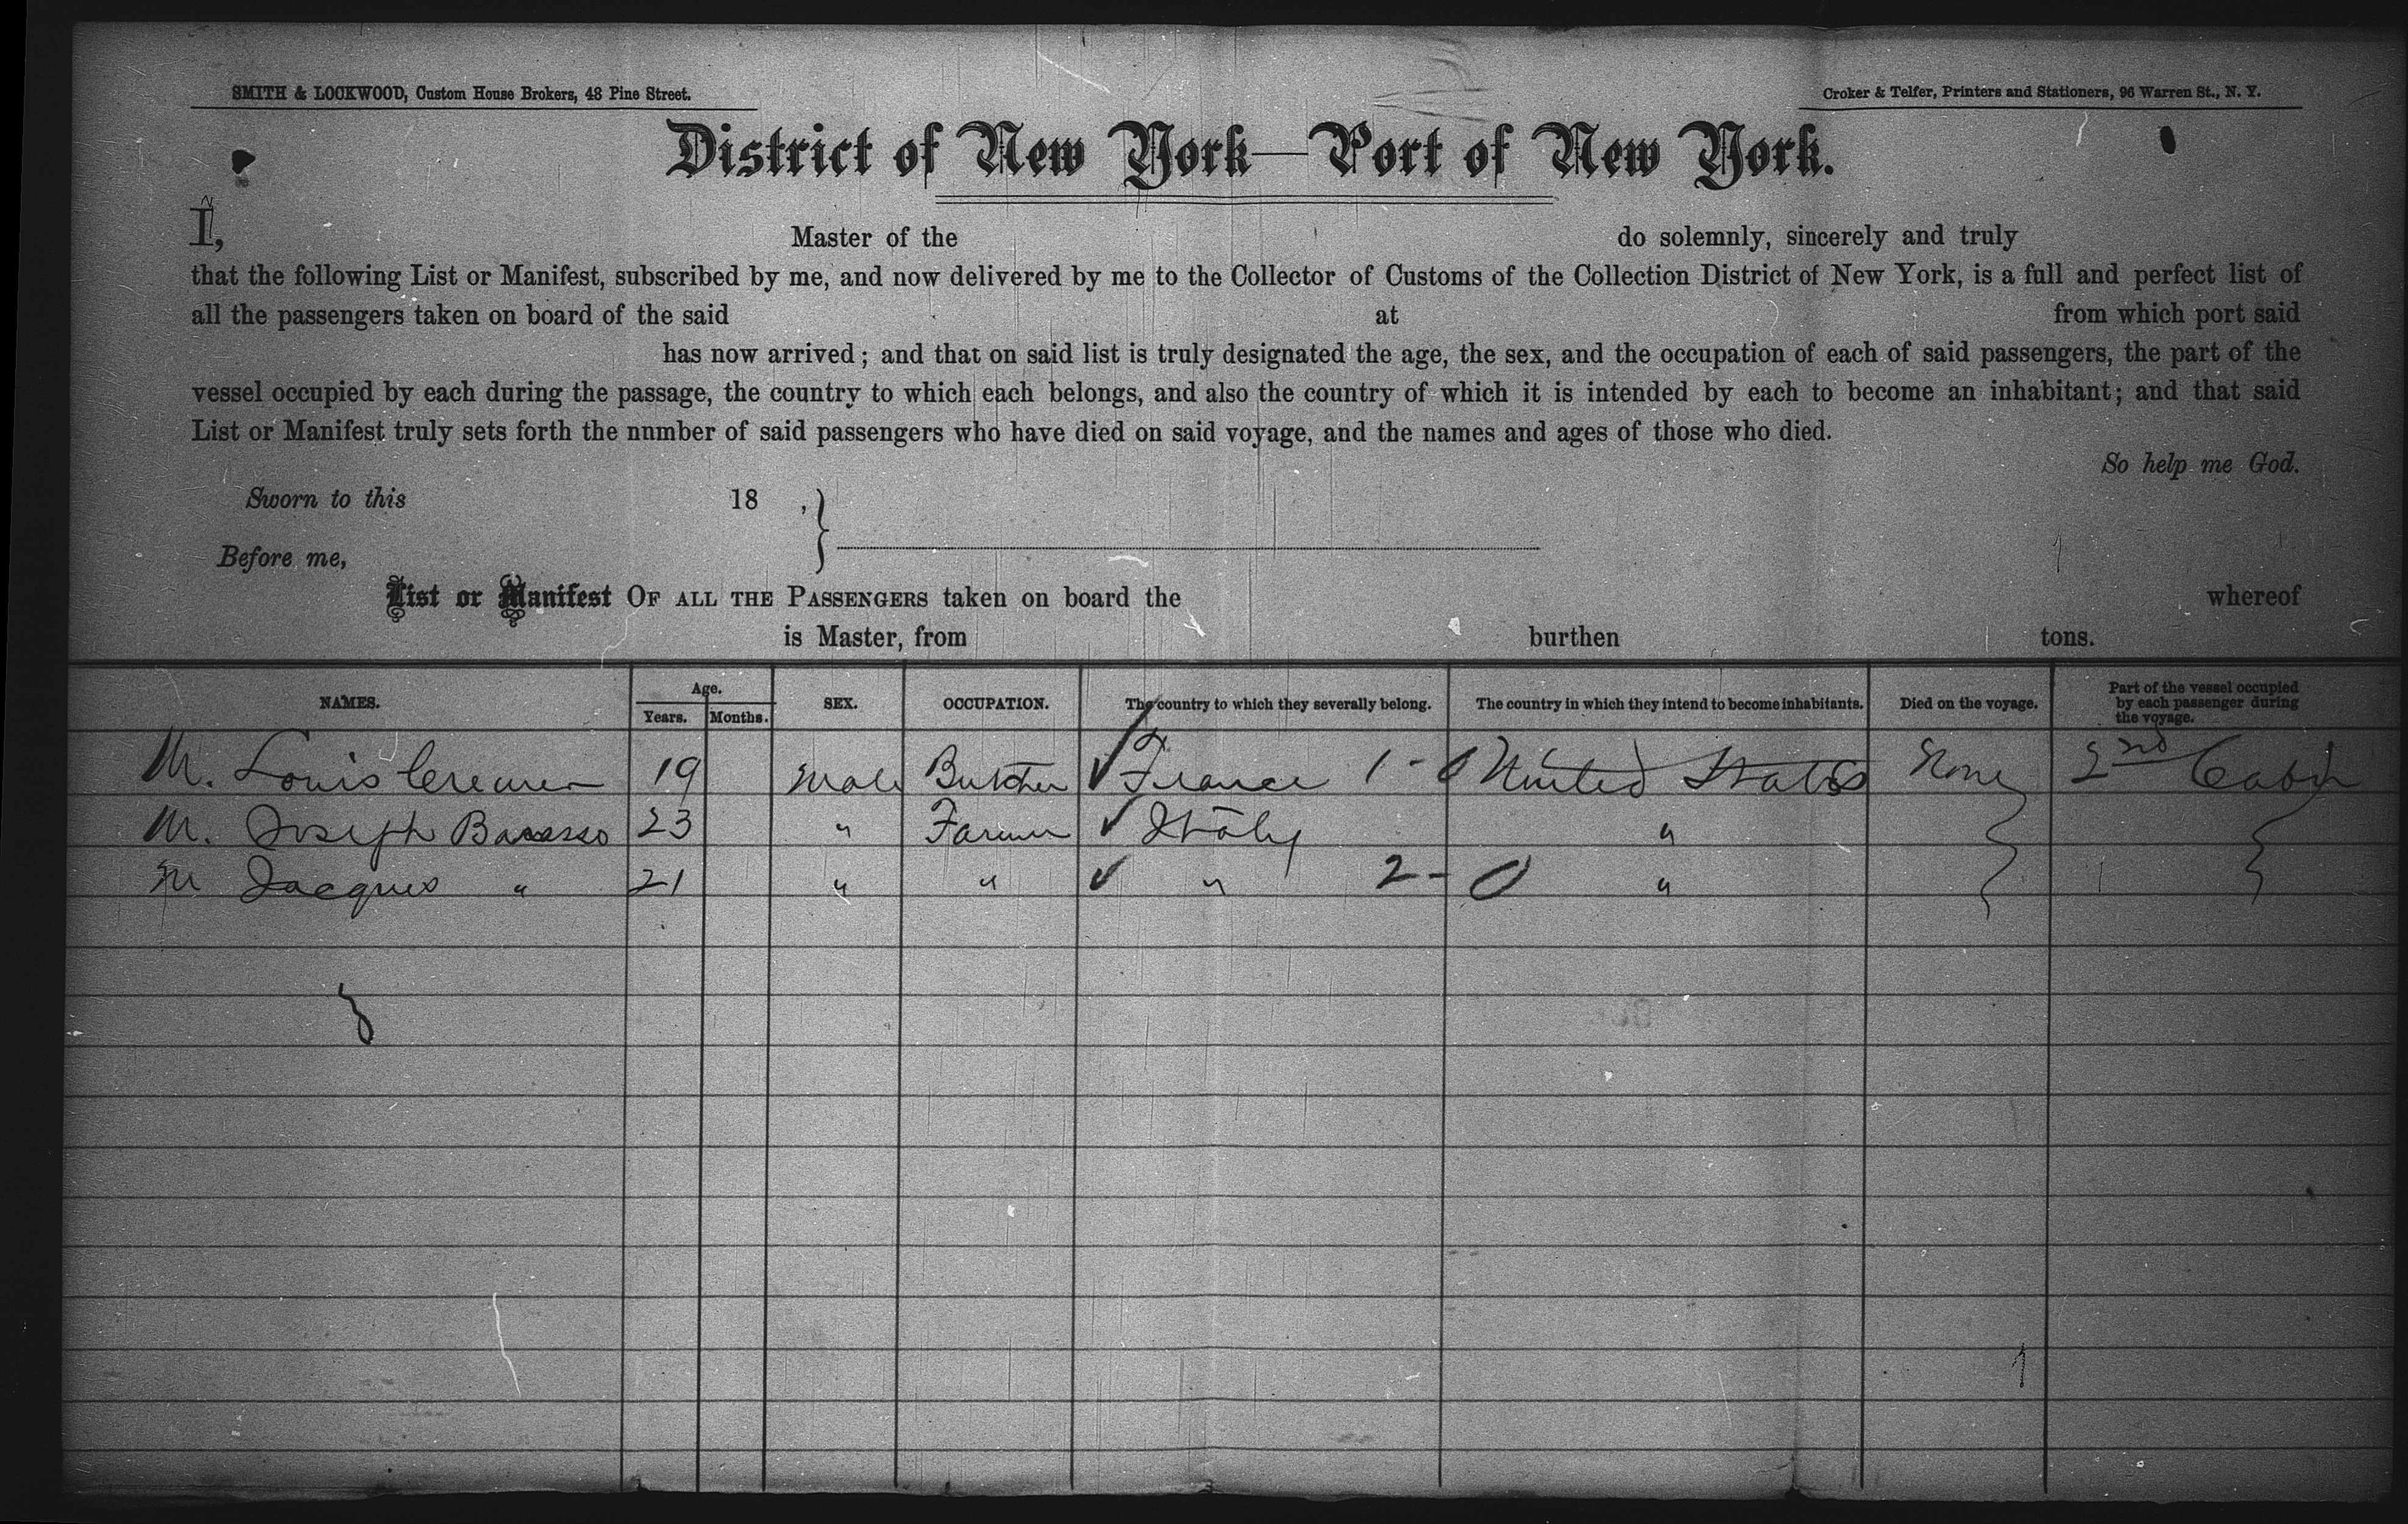 SMITH & LOCKWOOD, Custom House Brokers, 48 Pine Street.
Croker & Telfer, Printers and Stationers, 96 Warren St., N. Y.
District of New York—Port of New York.
I, Master of the do solemnly, sincerely and truly
that the following List or Manifest, subscribed by me, and now delivered by me to the Collector of Customs of the Collection District of New York, is a full and perfect list of
all the passengers taken on board of the said at from which port said
has now arrived; and that on said list is truly designated the age, the sex, and the occupation of each of said passengers, the part of the
vessel occupied by each during the passage, the country to which each belongs, and also the country of which it is intended by each to become an inhabitant; and that said
List or Manifest truly sets forth the nnmber of said passengers who have died on said voyage, and the names and ages of those who died.
So help me God.
Sworn to this 18 ,
Before me,
List or Manifest OF ALL THE PASSENGERS taken on board the whereof
is Master, from burthen tons.
NAMES. Age. Years. Months. SEX. OCCUPATION. The country to which they severally belong. The country in which they intend to become inhabitants. Died on the voyage. Part of the vessel occupied by each passenger during the voyage.
M. Louis 19 Male Butcher France 1-0 United States None 2nd Cabin
M. Joseph 23 " Farmer Italy "
M Jacques " 21 " " " 2-0 "